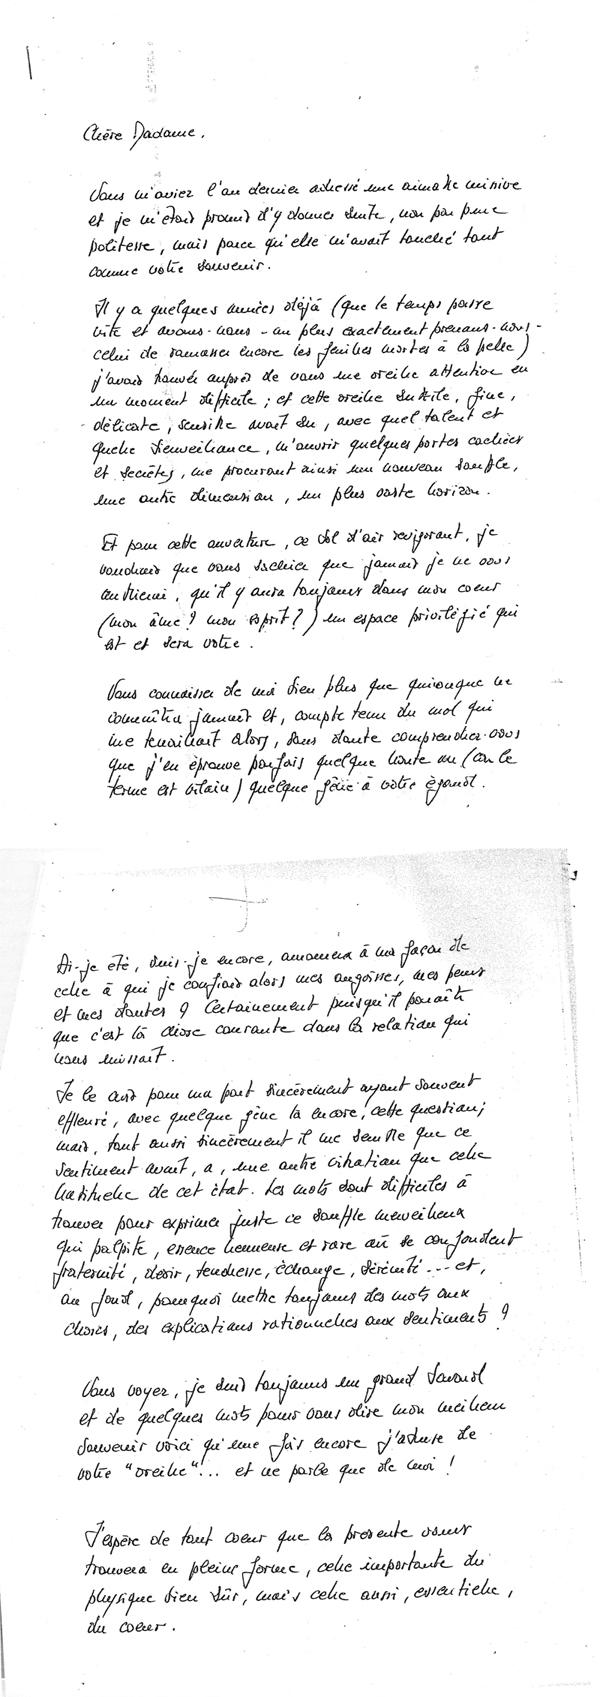 Chère Madame,
Vous m'aviez l'an dernier adressé une aimable missive
et je m'étais promis d'y donner suite, non par pure
politesse, mais parce qu'elle m'avait touché tout
comme votre souvenir.
Il y a quelques années déjà (que le temps passe
vite et avons-nous - ou plus exactement prenons-nous -
celui de ramasser encore les feuilles mortes à la pelle)
j'avais trouvé auprès de vous une oreille attentive en
un moment difficile ; et cette oreille subtile, fine,
délicate, sensible avait su, avec quel talent et
quelle bienveillance, m'ouvrir quelques portes cachées
et secrètes, me procurant ainsi un nouveau souffle,
une autre dimension, un plus vaste horizon.
Et pour cette ouverture, ce bol d'air revigorant, je
voudrais que vous sachiez que jamais je ne vous
oublierai, qu'il y aura toujours dans mon coeur
(mon âme ? mon esprit ?) un espace privilégié qui
est et sera votre.
Vous connaissez de moi bien plus que quiconque ne
connaîtra jamais et, compte tenu du mal qui
me tenaillait alors, sans doute comprendrez-vous
que j'en éprouve parfois quelque honte ou (car le
terme est vilain) quelque gêne à votre égard.
Ai-je été, suis-je encore, amoureux à ma façon de
celle à qui je confiais alors mes angoisses, mes peurs
et mes doutes ? Certainement puisqu'il paraît
que c'est là chose courante dans la relation qui
nous unissait.
Je le crois pour ma part sincèrement ayant souvent
effleuré, avec quelque gêne là encore, cette question ;
mais, tout aussi sincèrement il me semble que ce
sentiment avait, a, une autre vibration que celle
habituelle de cet état. Les mots sont difficiles à
trouver pour exprimer juste ce souffle merveilleux
qui palpite, essence heureuse et rare où se confondent
fraternité, désir, tendresse, échange, sérénité ... et,
au fond, pourquoi mettre toujours des mots aux
choses, des explications rationnelles aux sentiments ?
Vous voyez, je suis toujours un grand bavard
et de quelques mots pour vous dire mon meilleur
souvenir voici qu'une fois encore j'abuse de
votre "oreille"... et ne parle que de moi !
J'espère de tout coeur que la présente vous
trouvera en pleine forme, celle importante du
physique bien sûr, mais celle aussi, essentielle,
du coeur.